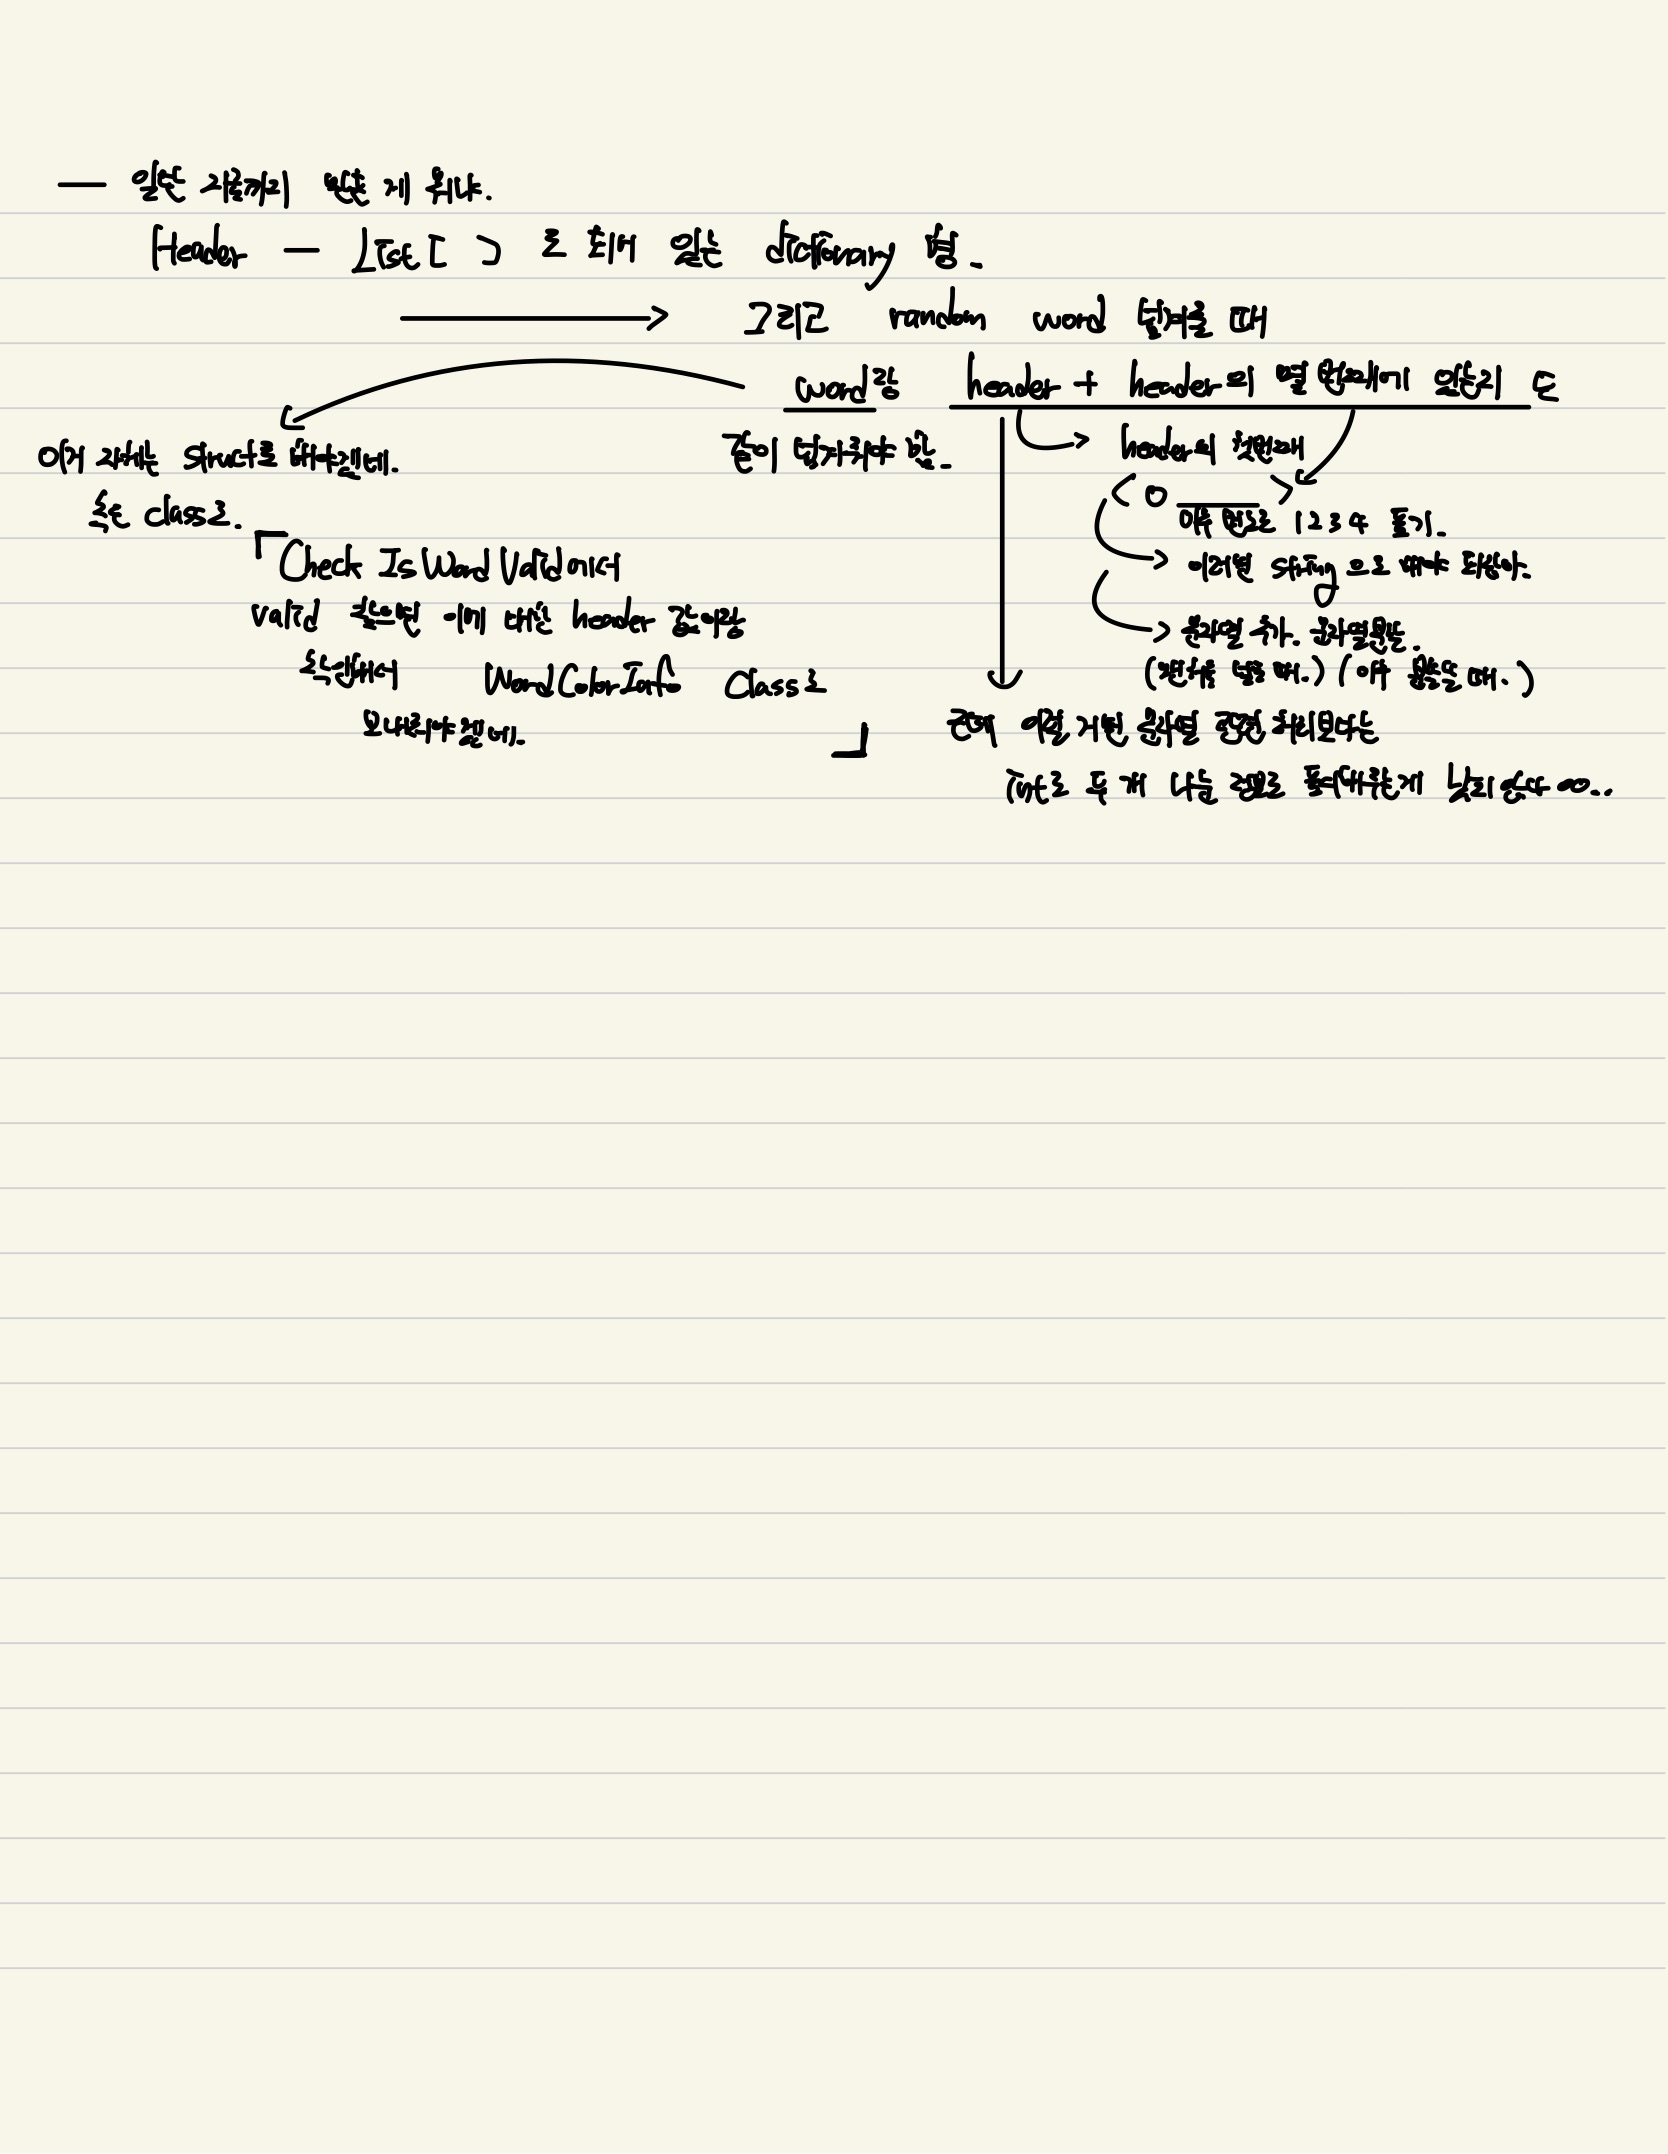 — 일단 지금까지 만든 게 뭐냐.
Header — List [ ] 로 되어 있는 dictionary 형.
→ 그리고 random word 넘겨줄 때
word랑 header + header의 몇 번째에 있는지 도
같이 넘겨줘야 함.
이거 자체는 struct로 해야겠네.
혹은 class로.
「Check Is Word Valid에서
valid 찾으면 이에 대한 header 값이랑
확인해서 WordColorInfo Class로
보내줘야겠네.」
header의 첫번째
< 0 >
이후 번호로 1 2 3 4 표기.
이러면 string 으로 해야 되잖아.
문자열 추가. 문자열 분할.
(맨처음 넣을 때.) (이후 뽑을 때.)
근데 이럴 거면 문자열 관련 처리보다는
int로 두 개 나눈 걸로 표시해주는게 낫지 않나 ㅇㅇ..